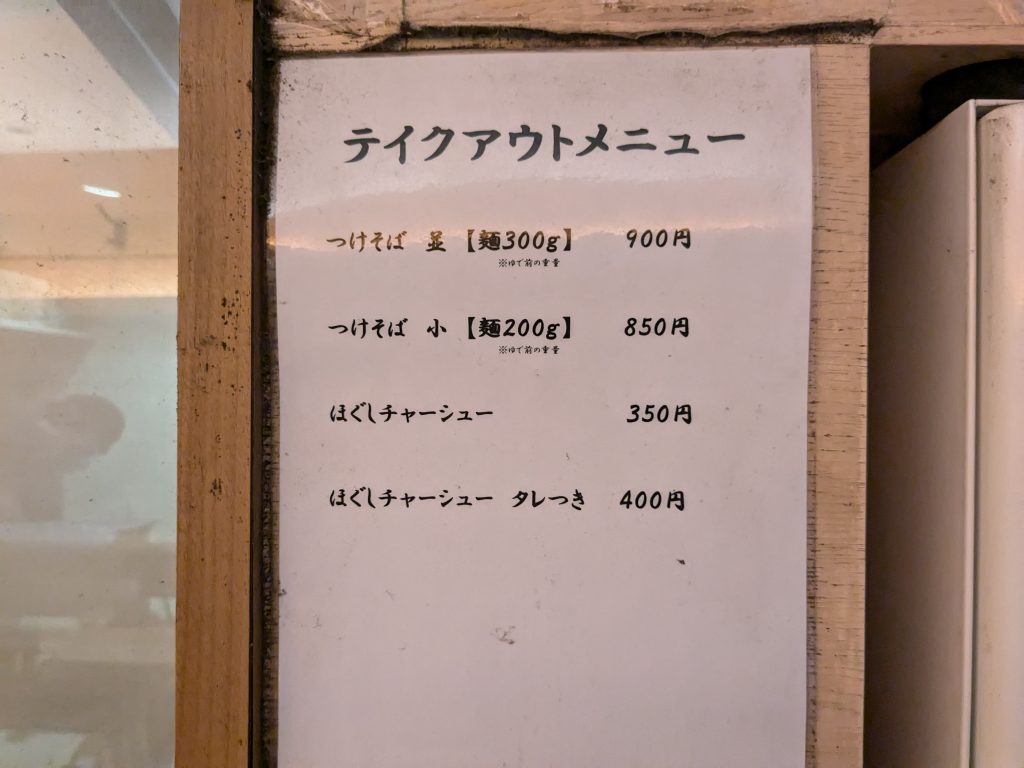 テイクアウトメニュー
つけそば 並 【麺300g】 900円
※ゆで前の重量
つけそば 小 【麺200g】 850円
※ゆで前の重量
ほぐしチャーシュー 350円
ほぐしチャーシュー タレつき 400円